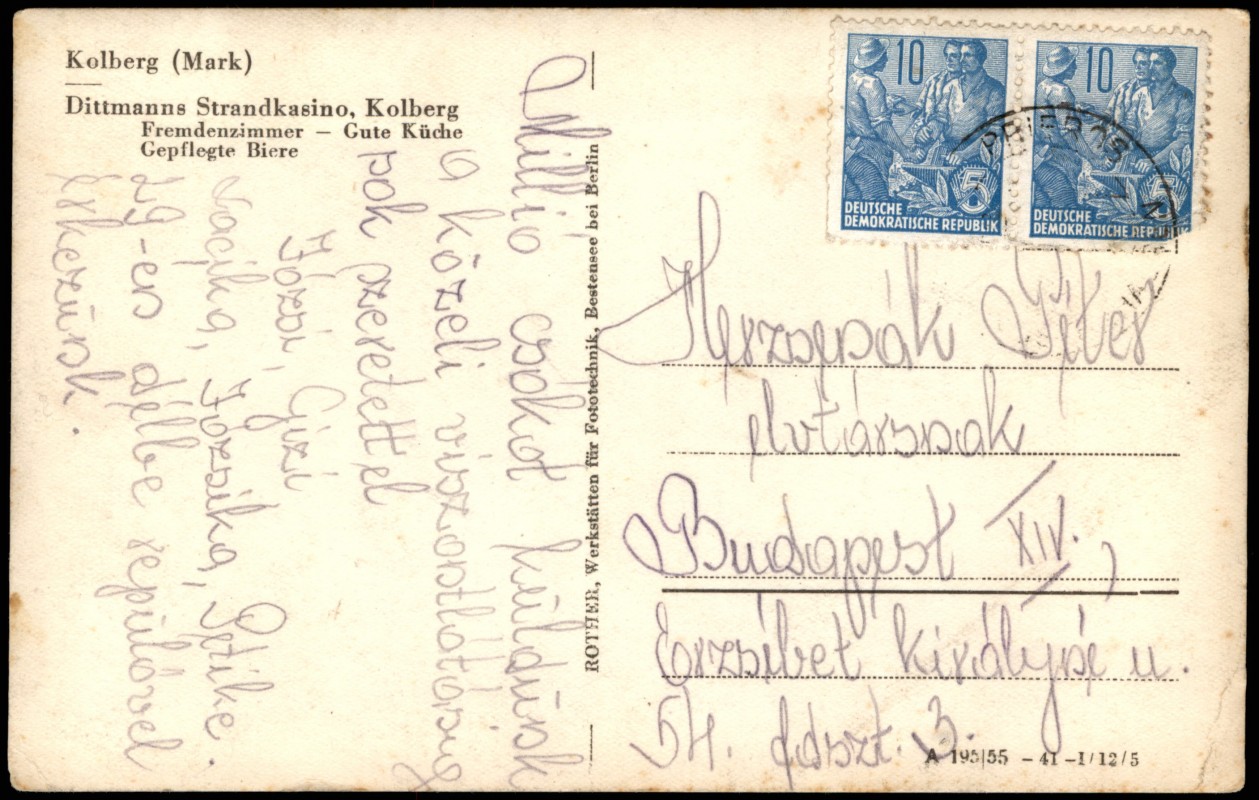 Kolberg (Mark)
Dittmanns Strandkasino, Kolberg
Fremdenzimmer — Gute Küche
Gepflegte Biere
Millió csókot küldünk
a közeli viszontlátásig
sok szeretettel
Józsi, Gizi
Nacika, Józsika, Petike.
29-én délbe repülővel
érkezünk.
ROTHER, Werkstätten für Fototechnik, Bestensee bei Berlin
10
5
DEUTSCHE
DEMOKRATISCHE REPUBLIK
10
5
DEUTSCHE
DEMOKRATISCHE REPUBLIK
PRIEROS
Péter
elvtársnak
Budapest XIV.,
Erzsébet királyné u.
54. fdszt. 3.
A 195/55 - 41 - I/12/5